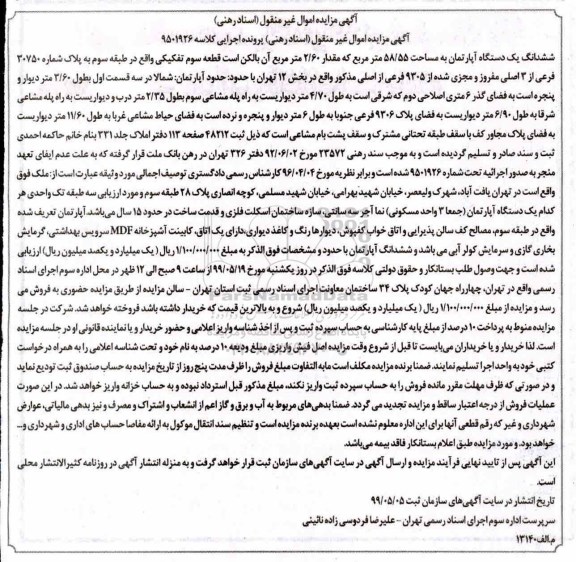 آگهی مزایده اموال غیر منقول (اسناد رهنی)
آگهی مزایده اموال غیر منقول (اسناد رهنی) پرونده اجرایی کلاسه ۹۵۰۱۹۲۶
ششدانگ یک دستگاه آپارتمان به مساحت ۵۸/۵۵ متر مربع که مقدار ۲/۶۰ متر مربع آن بالکن است قطعه سوم تفکیکی واقع در طبقه سوم به پلاک شماره ۳۰۷۵۰
فرعی از ۳ اصلی مفروز و مجزی شده از ۹۳۰۵ فرعی از اصلی مذکور واقع در بخش ۱۲ تهران با حدود: حدود آپارتمان: شمالا در سه قسمت اول بطول ۳/۶۰ متر دیوار و
پنجره است به فضای گذر ۶ متری اصلاحی دوم که شرقی است به طول ۴/۷۰ متر دیواریست به راه پله مشاعی سوم بطول ۲/۳۵ متر درب و دیواریست به راه پله مشاعی
شرقا به طول ۶/۹۰ متر دیواریست به فضای پلاک ۹۳۰۶ فرعی جنوبا به طول ۶ متر دیوار و پنجره و نرده است به فضای حیاط مشاعی غربا به طول ۱۱/۶۰ متر دیواریست
به فضای پلاک مجاور کف با سقف طبقه تحتانی مشترک و سقف پشت بام مشاعی است که ذیل ثبت ۴۸۲۱۲ صفحه ۱۱۳ دفتر املاک جلد ۳۳۱ بنام خانم حاکمه احمدی
ثبت و سند صادر و تسلیم گردیده است و به موجب سند رهنی ۲۳۵۷۲ مورخ ۹۲/۰۶/۰۲ دفتر ۳۲۶ تهران در رهن بانک ملت قرار گرفته که به علت عدم ایفای تعهد
منجر به صدور اجرائیه تحت شماره ۹۵۰۱۹۲۶ شده است و برابر نظریه مورخ ۹۶/۰۴/۰۴ کارشناس رسمی دادگستری توصیف اجمالی مورد وثیقه عبارت است از: ملک فوق
واقع است در تهران یافت آباد، شهرک ولیعصر، خیابان شهید بهرامی، خیابان شهید مسلمی، کوچه انصاری پلاک ۲۸ طبقه سوم و مورد ارزیابی سه طبقه تک واحدی هر
کدام یک دستگاه آپارتمان (جمعا ۳ واحد مسکونی) نما آجر سه سانتی، سازه ساختمان اسکلت فلزی و قدمت ساخت در حدود ۱۵ سال می‌باشد. آپارتمان تعریف شده
واقع در طبقه سوم، مصالح کف سالن پذیرایی و اتاق خواب کفپوش، دیوارها رنگ و کاغذ دیواری، دارای یک اتاق، کابینت آشپزخانه MDF سرویس بهداشتی، گرمایش
بخاری گازی و سرمایش کولر آبی می باشد و ششدانگ آپارتمان با حدود و مشخصات فوق الذکر به مبلغ ۱/۱۰۰/۰۰۰/۰۰۰ ریال (یک میلیارد و یکصد میلیون ریال) ارزیابی
شده است و جهت وصول طلب بستانکار و حقوق دولتی کلاسه فوق الذکر در روز یکشنبه مورخ ۹۹/۰۵/۱۹ از ساعت ۹ صبح الی ۱۲ ظهر در محل اداره سوم اجرای اسناد
رسمی واقع در تهران، چهارراه جهان کودک پلاک ۳۴ ساختمان معاونت اجرای اسناد رسمی ثبت استان تهران - سالن مزایده از طریق مزایده حضوری به فروش می
رسد و مزایده از مبلغ ۱/۱۰۰/۰۰۰/۰۰۰ ریال (یک میلیارد و یکصد میلیون ریال) شروع و به بالاترین قیمت که خریدار داشته باشد فروخته خواهد شد. شرکت در جلسه
مزایده منوط به پرداخت ۱۰ درصد از مبلغ پایه کارشناسی به حساب سپرده ثبت و پس از اخذ شناسه واریز اعلامی و حضور خریدار و یا نماینده قانونی او در جلسه مزایده
است. لذا خریدار و یا خریداران می‌بایست تا قبل از شروع وقت مزایده اصل فیش واریزی مبلغ ودیعه ۱۰ درصد به نام خود و تحت شناسه اعلامی را به همراه درخواست
کتبی خود به واحد اجرا تسلیم نمایند. ضمنا برنده مزایده مکلف است مابه التفاوت مبلغ فروش را ظرف مدت پنج روز از تاریخ مزایده به حساب صندوق ثبت تودیع نماید
و در صورتی که ظرف مهلت مقرر مانده فروش را به حساب سپرده ثبت واریز نکند، مبلغ مذکور قبل استرداد نبوده و به حساب خزانه واریز خواهد شد. در این صورت
عملیات فروش از درجه اعتبار ساقط و مزایده تجدید می گردد. ضمنا بدهی‌های مربوط به آب و برق و گاز اعم از انشعاب و اشتراک و مصرف و نیز بدهی مالیاتی، عوارض
شهرداری و غیر که رقم قطعی آنها برای این اداره معلوم نشده است بعهده برنده مزایده است و تنظیم سند انتقال موکول به ارائه مفاصا حساب های اداری و شهرداری و...
خواهد بود. و مورد مزایده طبق اعلام بستانکار فاقد بیمه می‌باشد.
این آگهی پس از تایید نهایی فرآیند مزایده و ارسال آگهی در سایت آگهی‌های سازمان ثبت قرار خواهد گرفت و به منزله انتشار آگهی در روزنامه کثیرالانتشار محلی
است.
تاریخ انتشار در سایت آگهی‌های سازمان ثبت ۹۹/۰۵/۰۵
سرپرست اداره سوم اجرای اسناد رسمی تهران - علیرضا فردوسی زاده نائینی
م.الف ۱۳۱۴۰
ParsNamadData